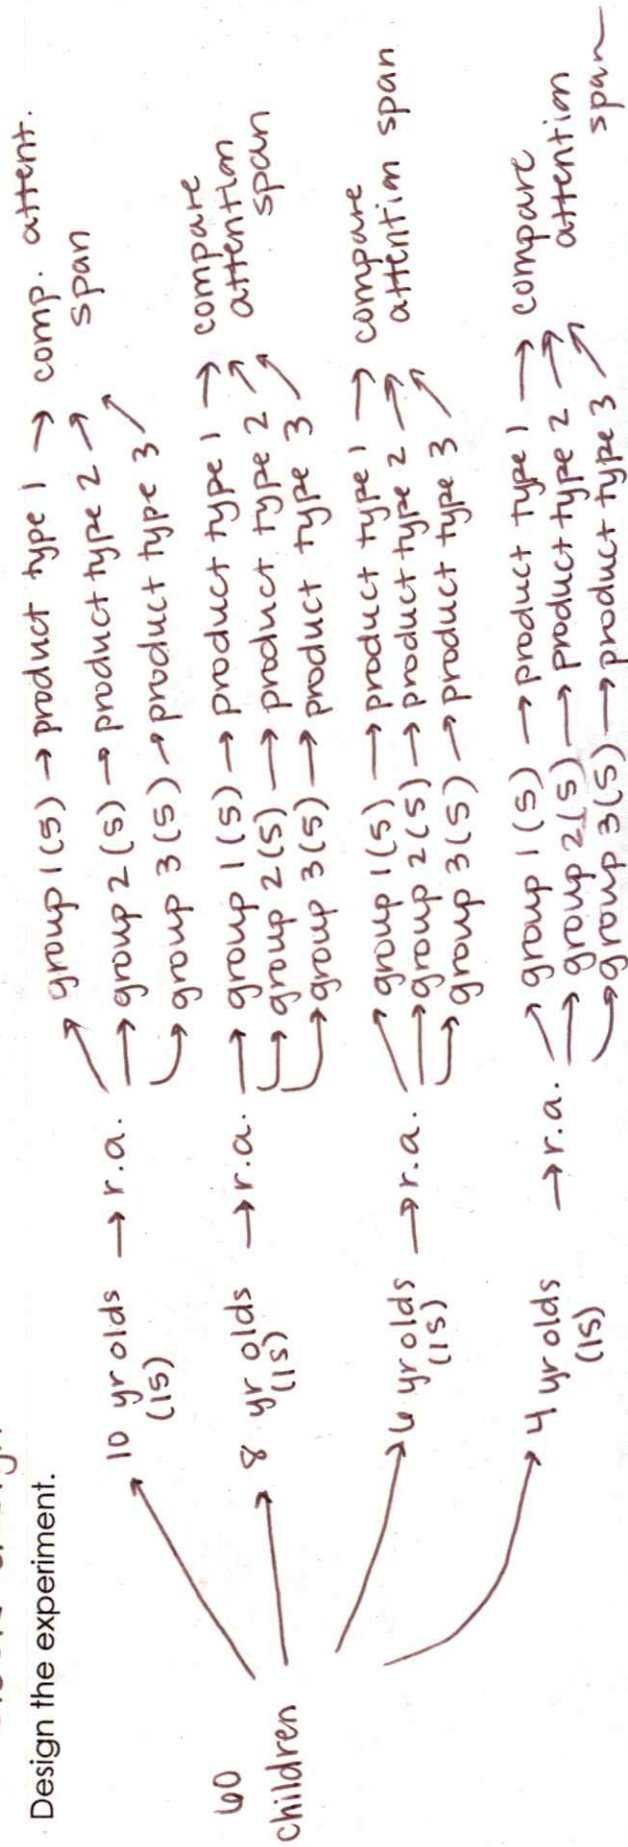 Design the experiment.
60
children
10 yr olds
(15)
→ r.a.
group 1 (5) → product type 1 → comp. attent.
span
group 2 (5) → product type 2
group 3 (5) → product type 3
8 yr olds
(15)
→ r.a.
group 1 (5) → product type 1 → compare
attention
span
group 2 (5) → product type 2
group 3 (5) → product type 3
6 yr olds
(15)
→ r.a.
group 1 (5) → product type 1 → compare
attention span
group 2 (5) → product type 2
group 3 (5) → product type 3
4 yr olds
(15)
→ r.a.
group 1 (5) → product type 1 → compare
attention
span
group 2 (5) → product type 2
group 3 (5) → product type 3